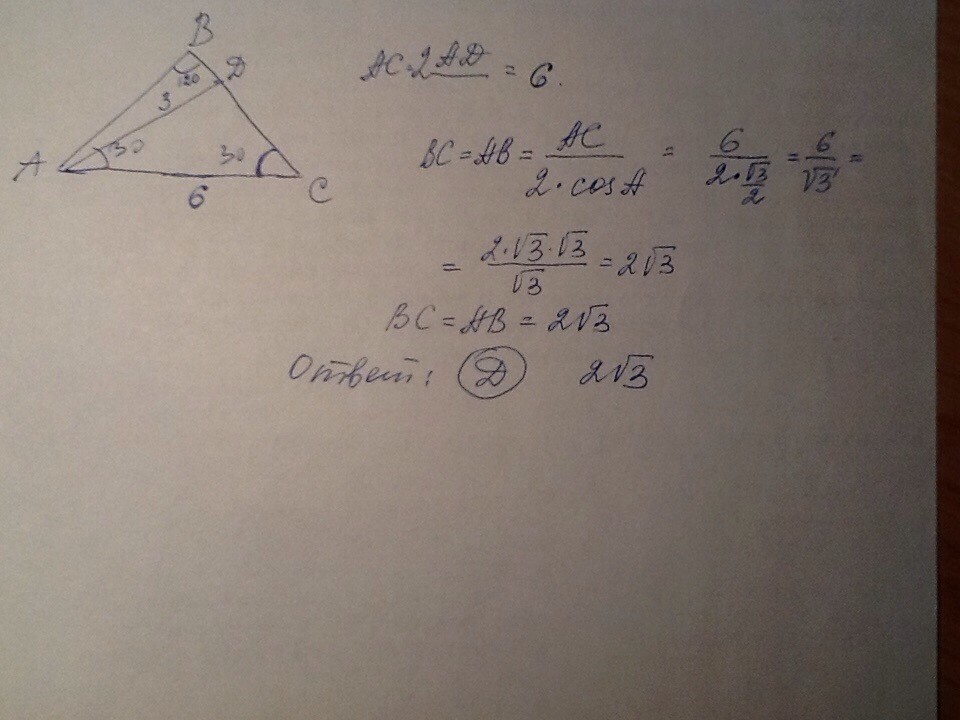 B
D
120
3
A
30
30
6
C
AC = 2AD = 6.
BC = AB = AC / (2 · cosA) = 6 / (2 · √3/2) = 6/√3 =
= (2·√3·√3)/√3 = 2√3
BC = AB = 2√3
Ответ: D 2√3